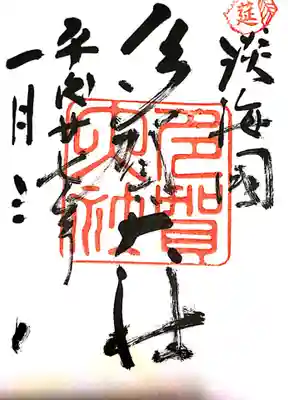 莚
淡海国
多賀大社
多賀
大社
平成廿七年
一月三日